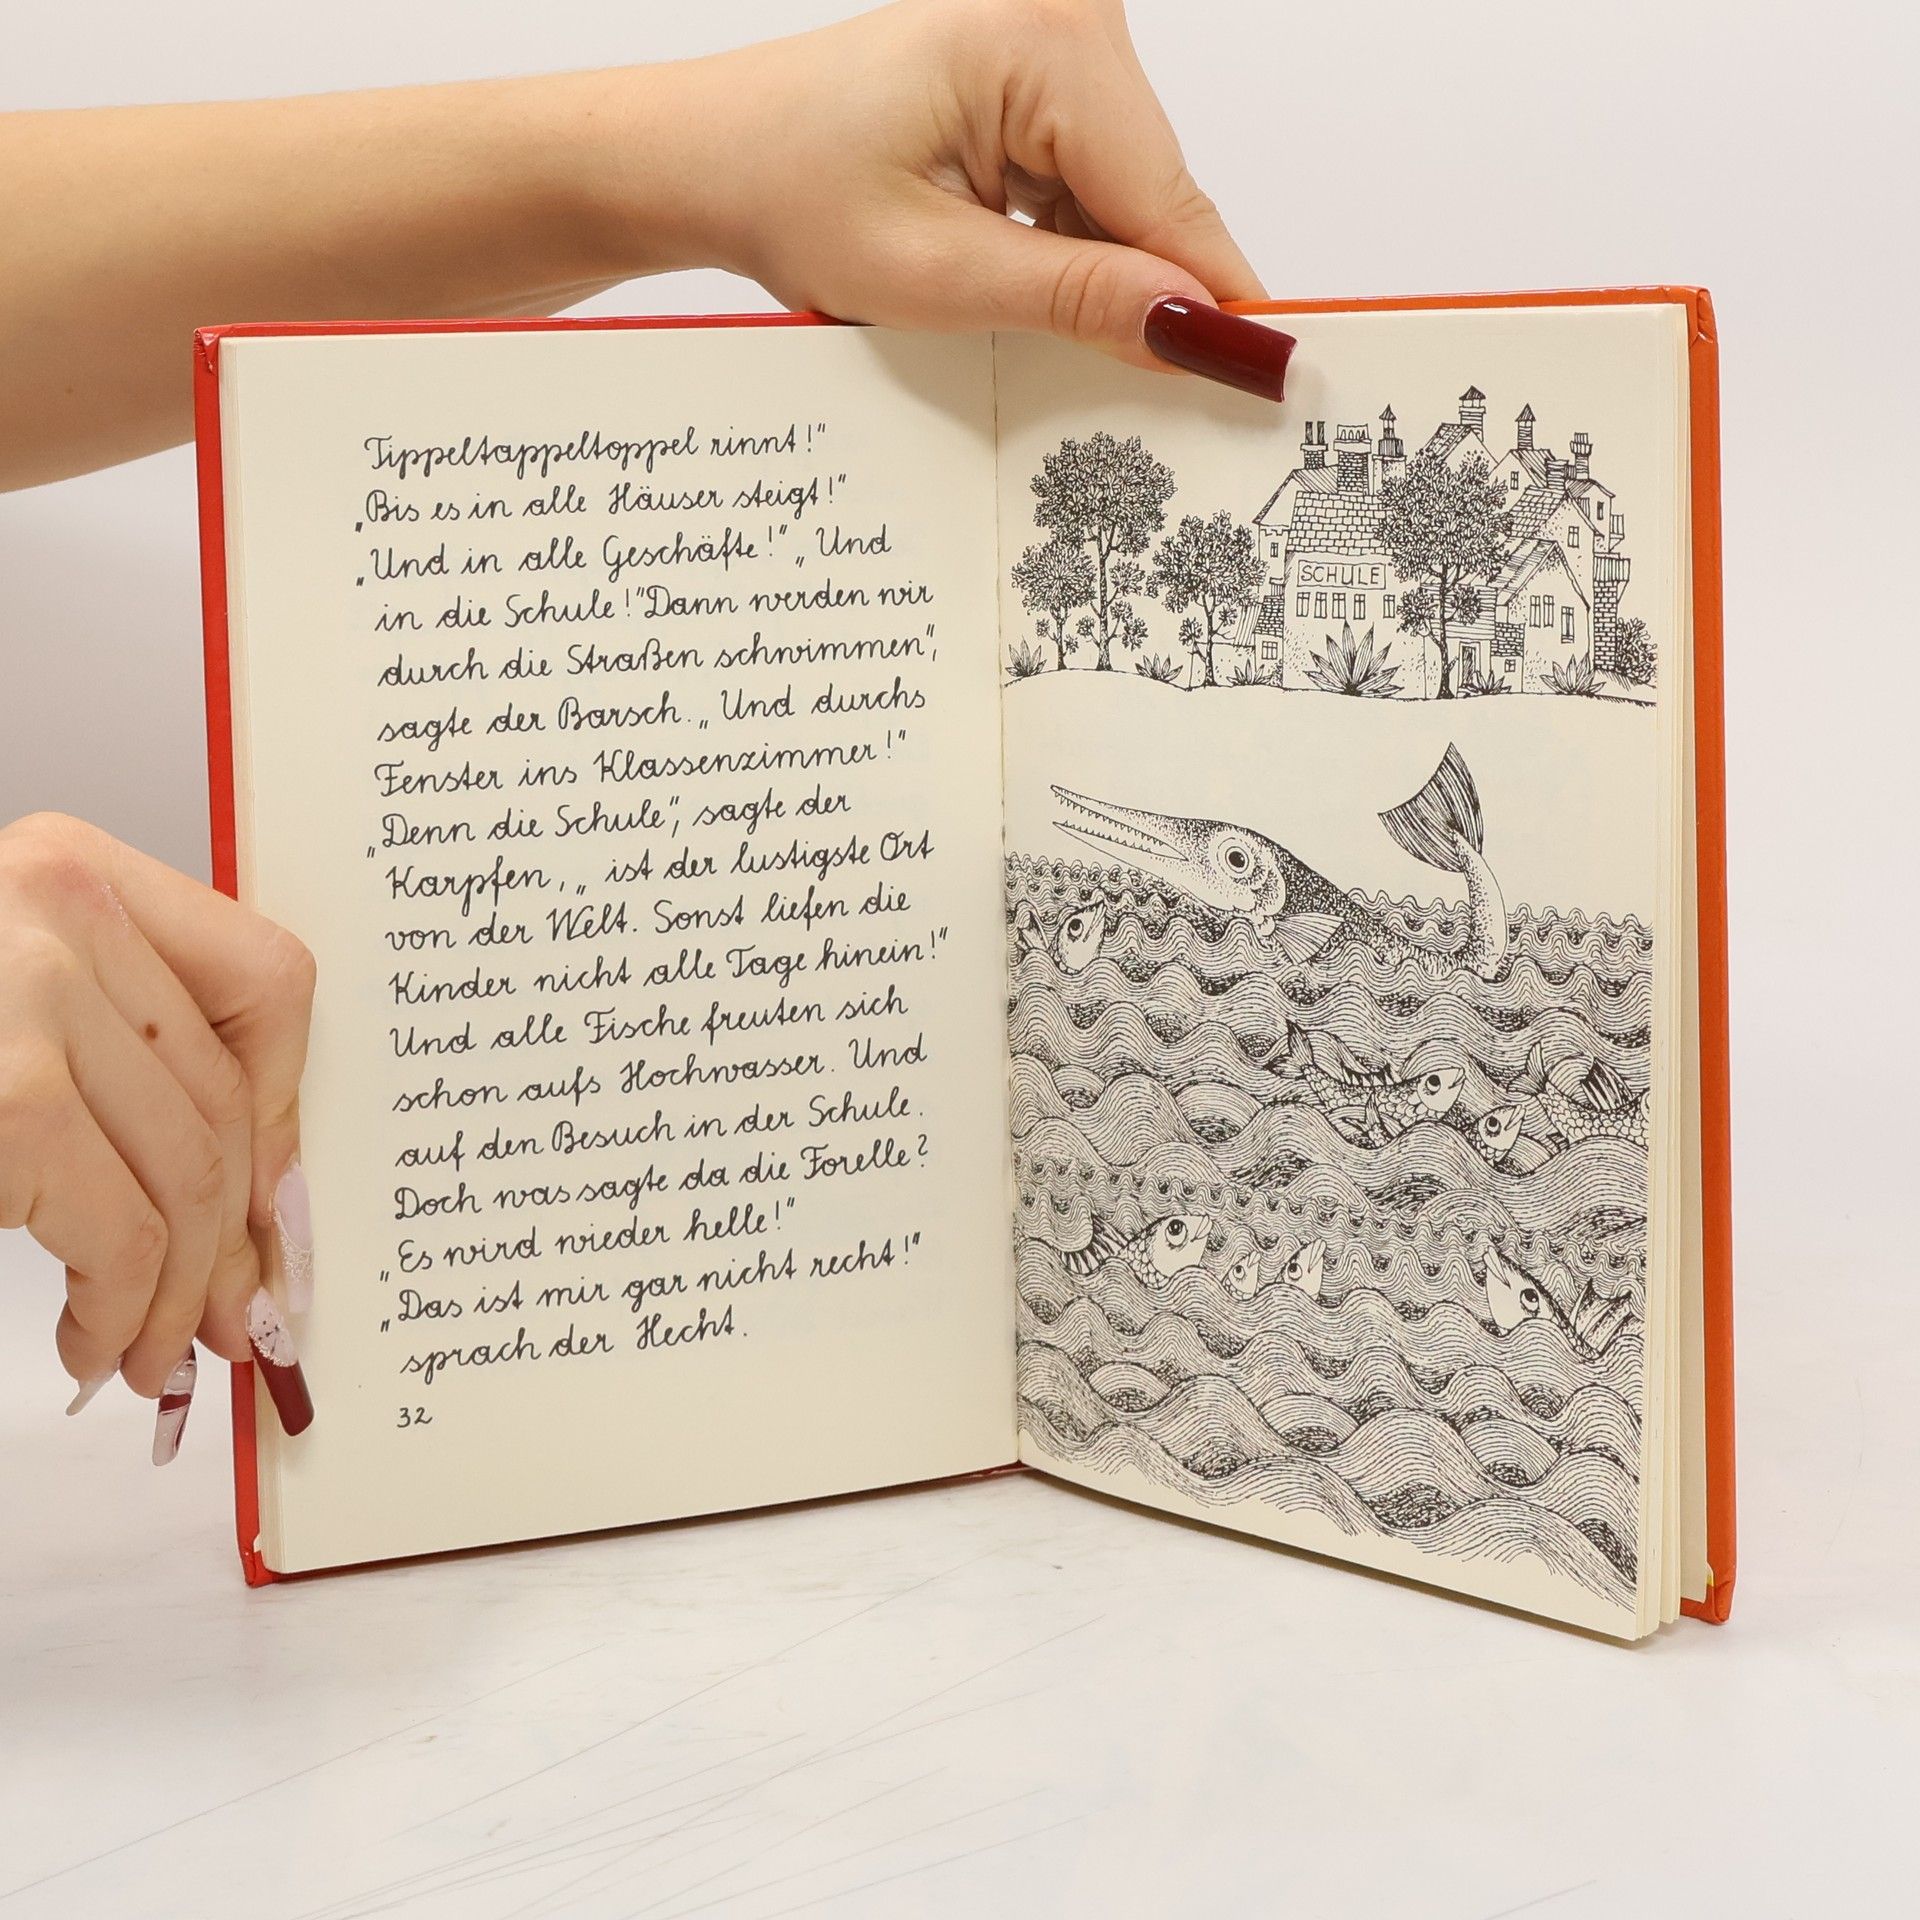 Tippeltappeltoppel rinnt!“
„Bis es in alle Häuser steigt!“
„Und in alle Geschäfte!“ „Und
in die Schule!“ Dann werden wir
durch die Straßen schwimmen“,
sagte der Barsch. „Und durchs
Fenster ins Klassenzimmer!“
„Denn die Schule“, sagte der
Karpfen, „ist der lustigste Ort
von der Welt. Sonst liefen die
Kinder nicht alle Tage hinein!“
Und alle Fische freuten sich
schon aufs Hochwasser. Und
auf den Besuch in der Schule.
Doch was sagte da die Forelle?
„Es wird wieder helle!“
„Das ist mir gar nicht recht!“
sprach der Hecht.
32
SCHULE